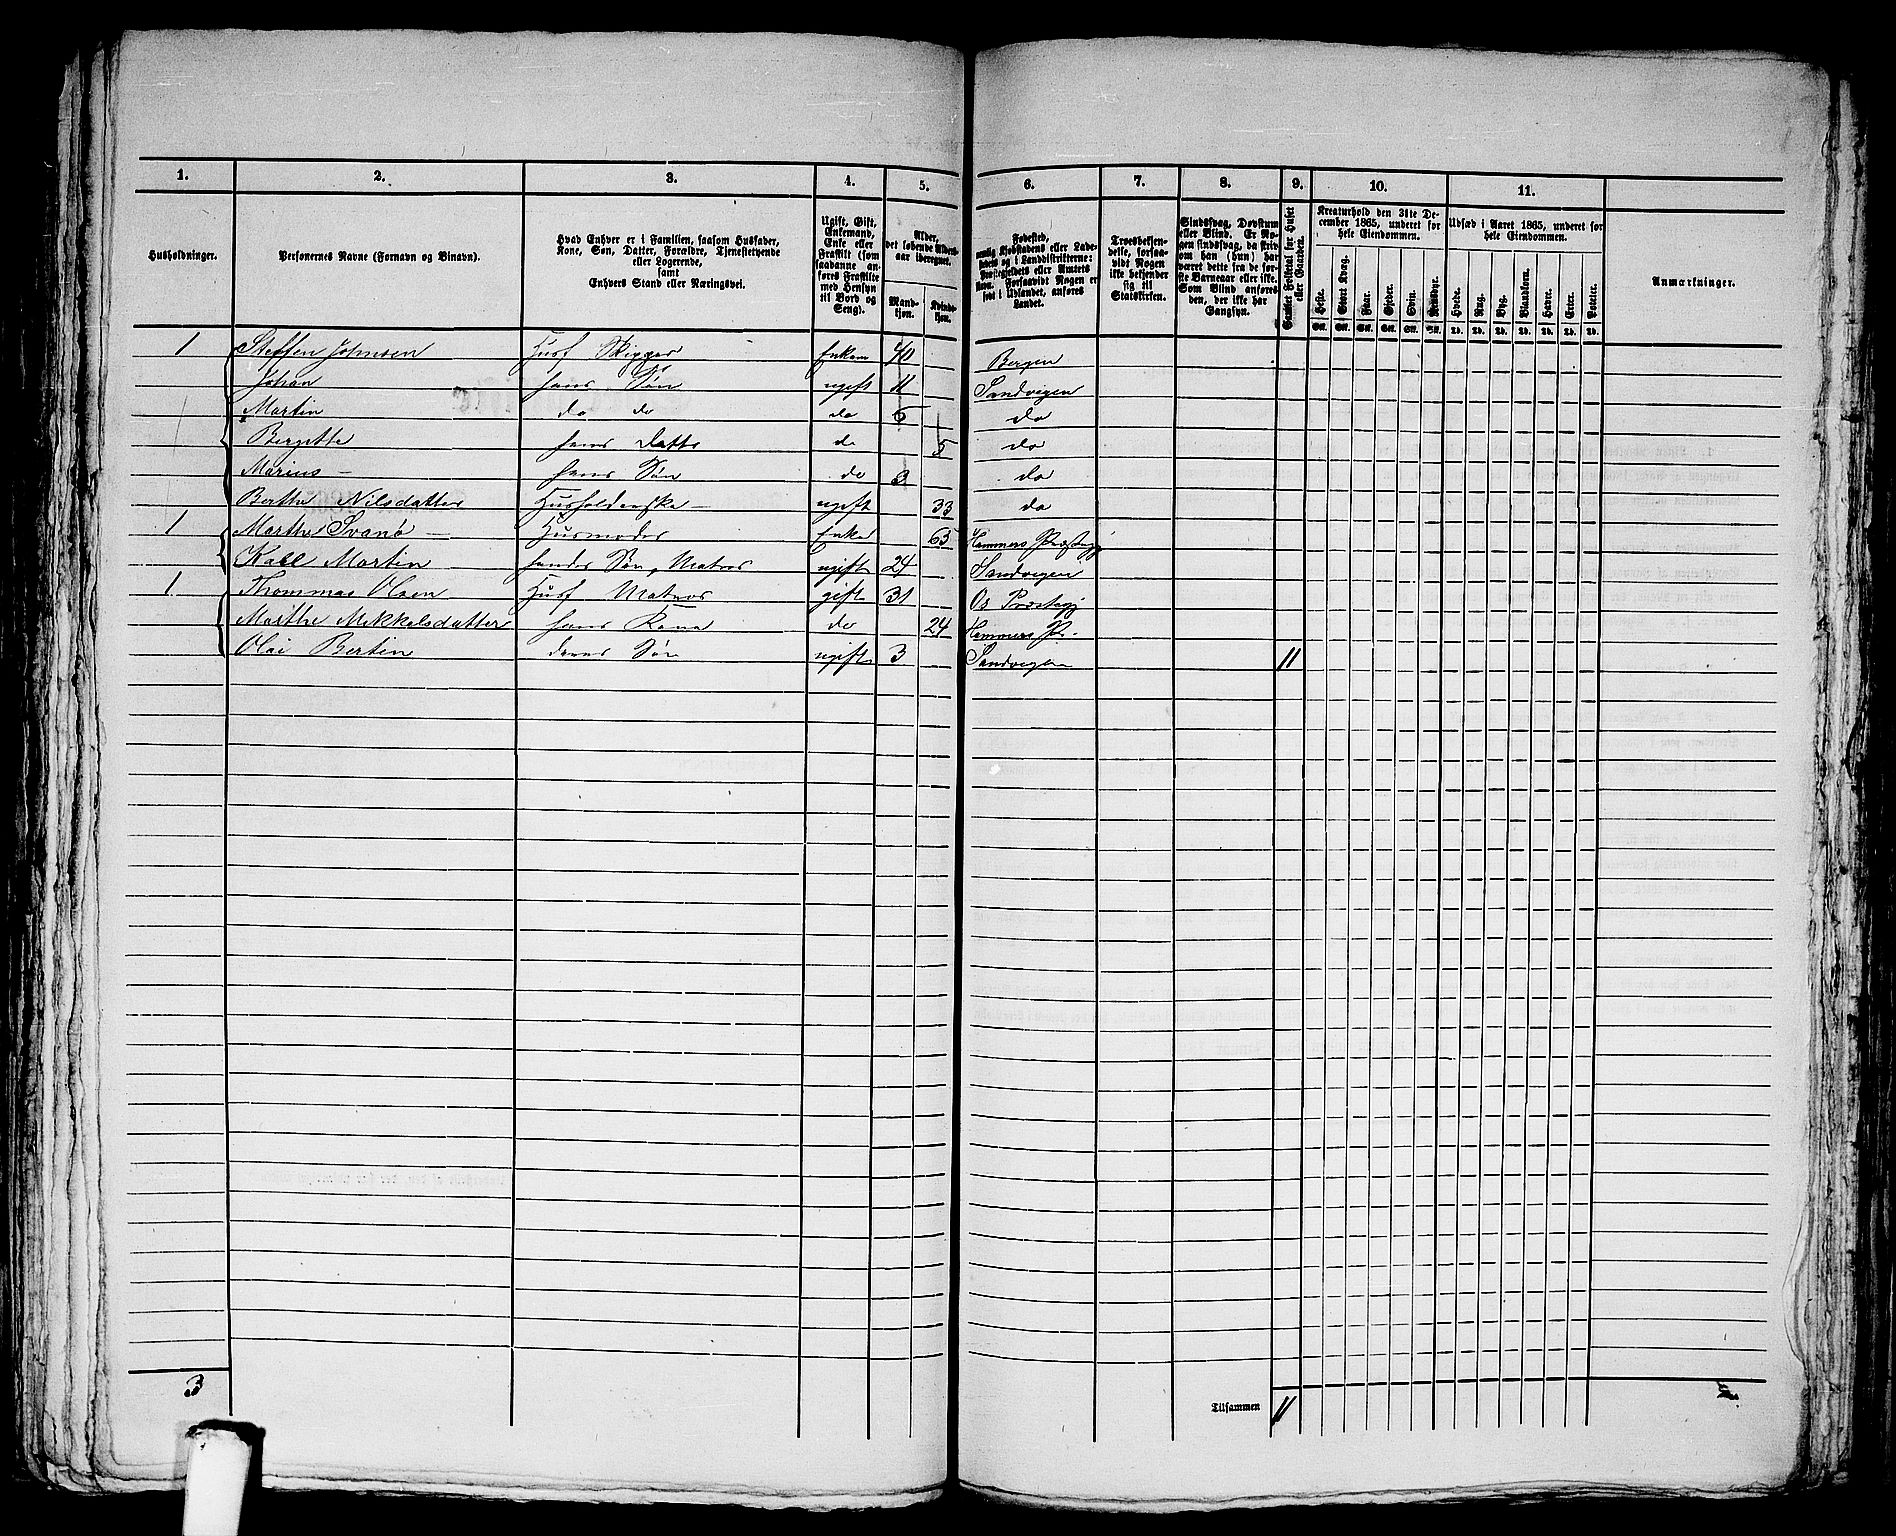 1. 2. 3. 4. 5. 6. 7. 8. 9. 10. 11.
Husholdninger.
Personernes Navne (Fornavn og Binavn).
Hvad Enhver er i Familien, saasom Husfader,
Kone, Søn, Datter, Forældre, Tjenestetyende
eller Logerende,
samt
Enhvers Stand eller Næringsvei.
Ugift, Gift,
Enkemand,
Enke eller
Fraskilt (som
saadanne an-
føres Fraskilte
med Hensyn
til Bord og
Seng).
Alder,
det løbende Alders-
aar iberegnet.
Mand-
kjøn.
Kvind-
kjøn.
Fødested,
nemlig Kjøbstadens eller Lade-
stedets og i Landdistrikterne:
Præstegjeldets eller Amtets
Navn. Forsaavidt Nogen er
født i Udlandet, anføres
Landet.
Troesbekjen-
delse, forsaa-
vidt Nogen
ikke bekjender
sig til
Statskirken.
Sindssvag, Døvstum
eller Blind. Er No-
gen sindssvag, da skriv
om han (hun) har
været dette fra de før-
ste Barneaar eller ikke.
Som Blind anføres
den, der ikke har
Gangsyn.
Samlet Folketal for Huset
eller Gaarden.
Kreaturhold den 31te De-
cember 1865, underet for
hele Eiendommen.
Heste. Stort Kvæg. Faar. Gjeder. Svin. Rensdyr.
St. St. St. St. St. St.
Udsæd i Aaret 1865, underet for
hele Eiendommen.
Hvede. Rug. Byg. Blandkorn. Havre. Erter. Poteter.
Td. Td. Td. Td. Td. Td. Td.
Anmærkninger.
1 Steffen Johnsen Husf Skipper Enkem 40 Bergen
Johan hans Søn ugift 11 Sandvigen
Martin do do do 6 do
Bergitte hans Datter do 5 do
Marius - hans Søn do 3 do
Berthe Nilsdatter Husholderske - ugift 33 do
1 Marthe Svanö - Husmoder Enke 65 Hammers Præstegj
Karl Martin hendes Søn, Matros ugift 24 Sandvigen
1 Thommas Olsen Husf Matros gift 31 Os Præstegj
Marthe Mikkelsdatter hans Kone do 24 Hammers Pr.
Olai Bertin deres Søn ugift 3 Sandvigen 11
3 Tilsammen 11